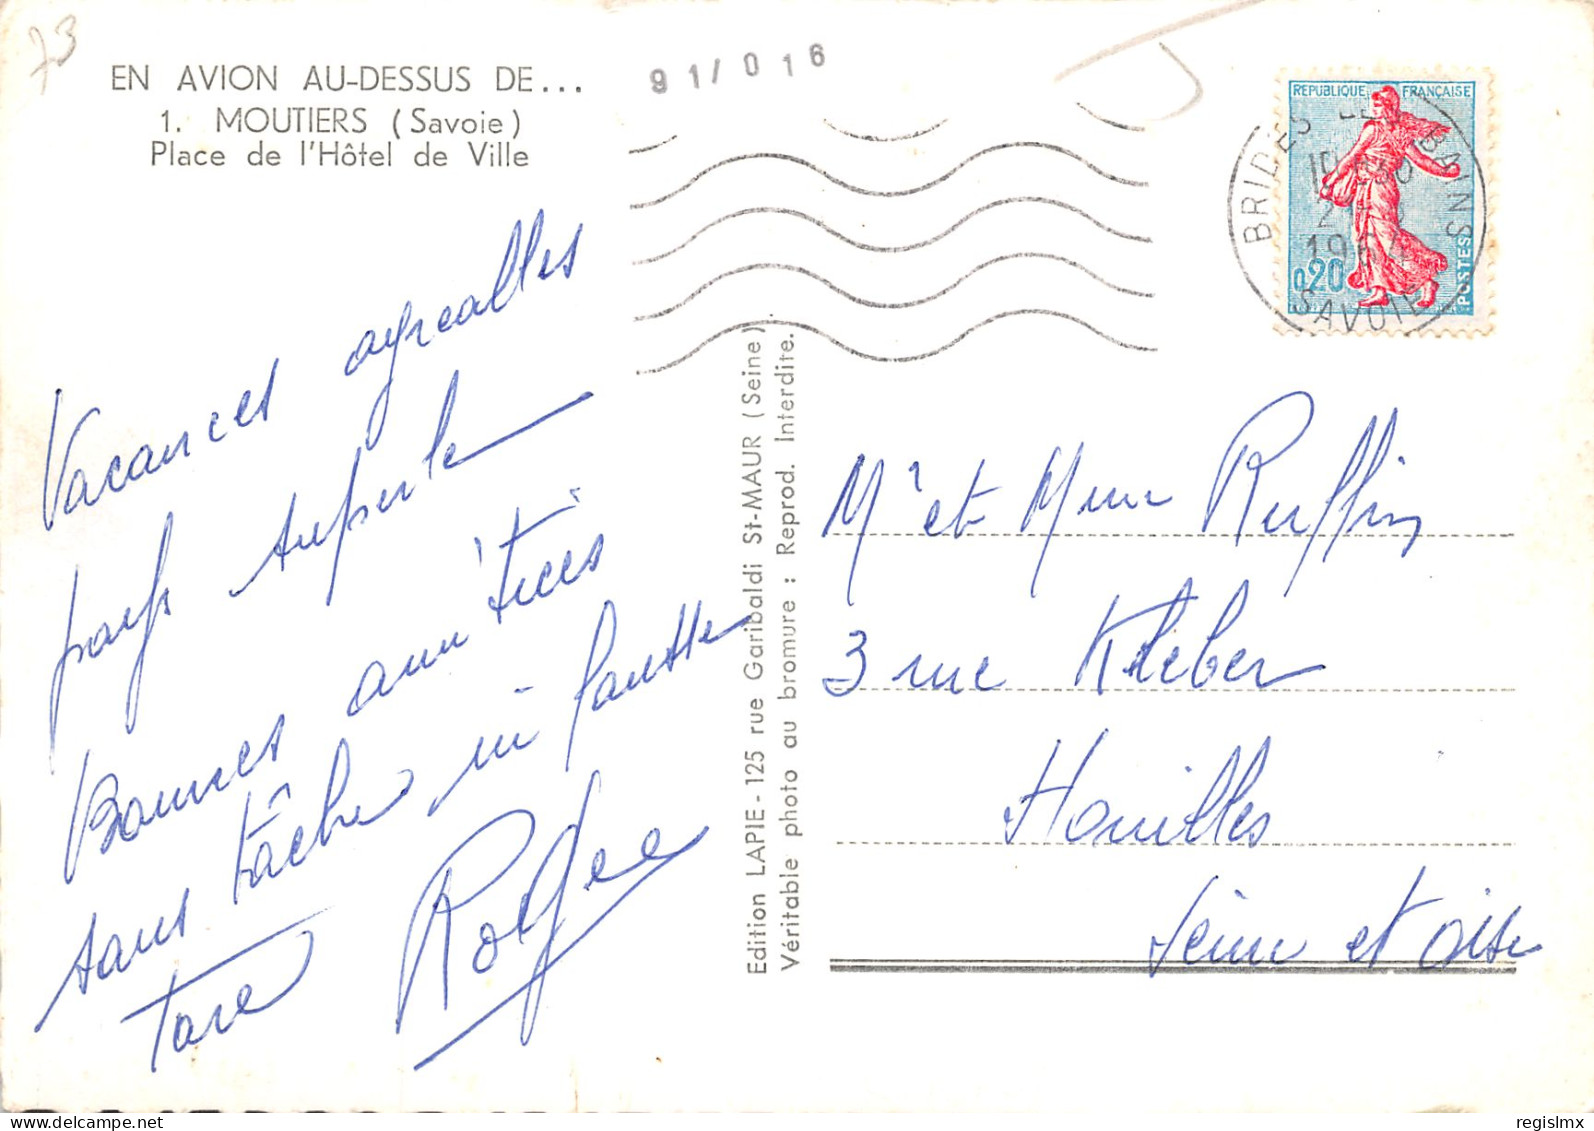 73
EN AVION AU-DESSUS DE...
1. MOUTIERS (Savoie)
Place de l'Hôtel de Ville
91/016
REPUBLIQUE FRANÇAISE
0,20
POSTES
BRIDES LES BAINS
SAVOIE
Vacances agréables
pays superbe
Bonnes amitiés
sans tâche ni fausse
tare
Edition LAPIE - 125 rue Garibaldi St-MAUR (Seine)
Véritable photo au bromure : Reprod. Interdite.
Mr et Mme Ruffin
3 rue Kleber
Houilles
Seine et Oise
regislmx